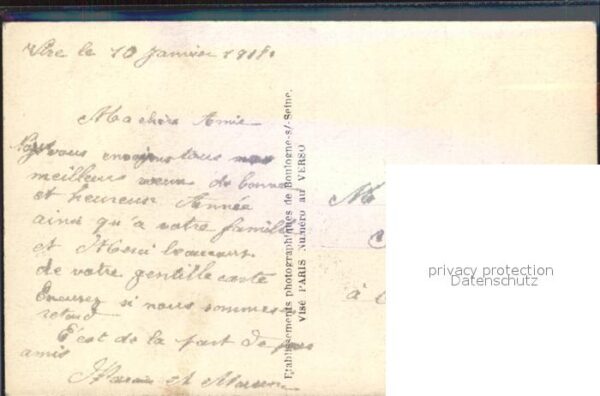 le 10 Janvier 1918
Ma chère Amie
vous envoyons tous nos
meilleurs vœux de bonne
et heureuse Année
ainsi qu'à votre famille
et Merci beaucoup
de votre gentille carte
Excusez si nous sommes
retard
C'est de la part de
amis
et
M
à
Etablissements photographiques de Boulogne-s/-Seine.
Visé PARIS Numéro au VERSO
privacy protection
Datenschutz